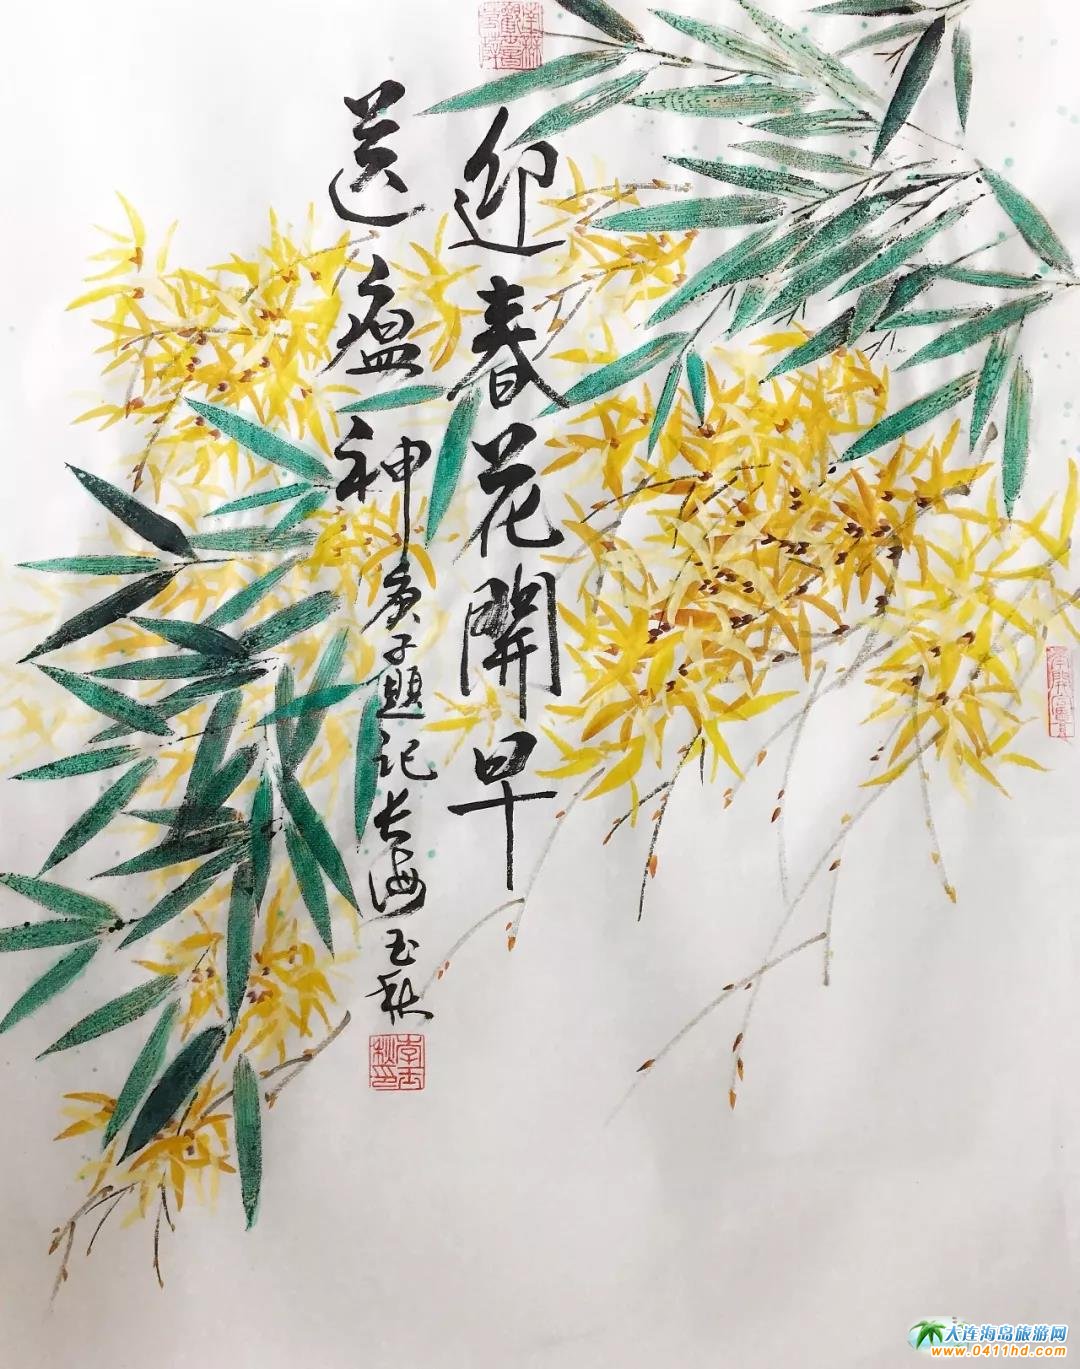 迎春花開早
送瘟神
庚子題記长海玉秋
李玉秋印
大连海岛旅游网
www.0411hd.com